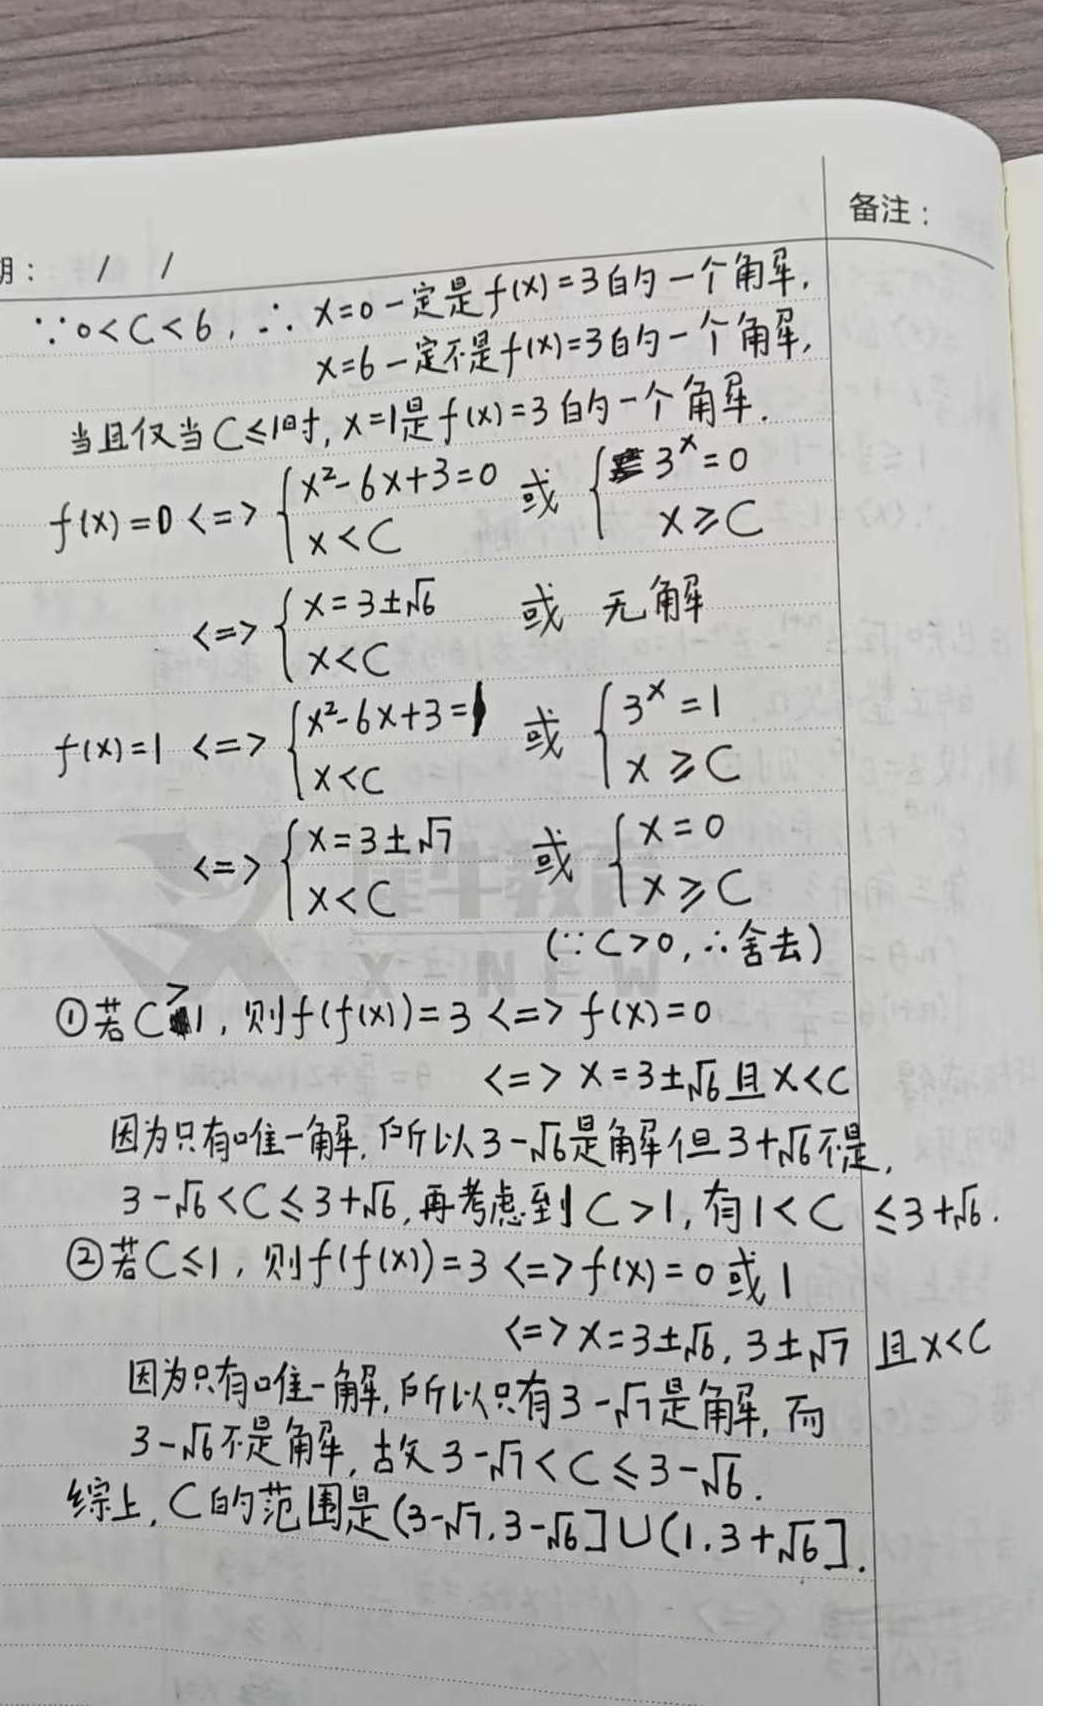 备注：
期： / /
∵0<C<6，∴ x=0一定是f(x)=3的一个解，
x=6一定不是f(x)=3的一个解，
当且仅当C≤1时，x=1是f(x)=3的一个解．
f(x)=0 <=> { x²-6x+3=0 或 { 3^x=0
x<C x≥C
<=> { x=3±√6 或 无解
x<C
f(x)=1 <=> { x²-6x+3=1 或 { 3^x=1
x<C x≥C
<=> { x=3±√7 或 { x=0
x<C x≥C
(∵C>0，∴舍去)
犀牛教育
X-NEW
①若C>1，则f(f(x))=3 <=> f(x)=0
<=> x=3±√6 且 x<C
因为只有唯一解，所以3-√6是解但3+√6不是，
3-√6<C≤3+√6，再考虑到C>1，有1<C≤3+√6．
②若C≤1，则f(f(x))=3 <=> f(x)=0或1
<=> x=3±√6，3±√7 且x<C
因为只有唯一解，所以只有3-√7是解，而
3-√6不是解，故3-√7<C≤3-√6．
综上，C的范围是(3-√7，3-√6]∪(1，3+√6]．